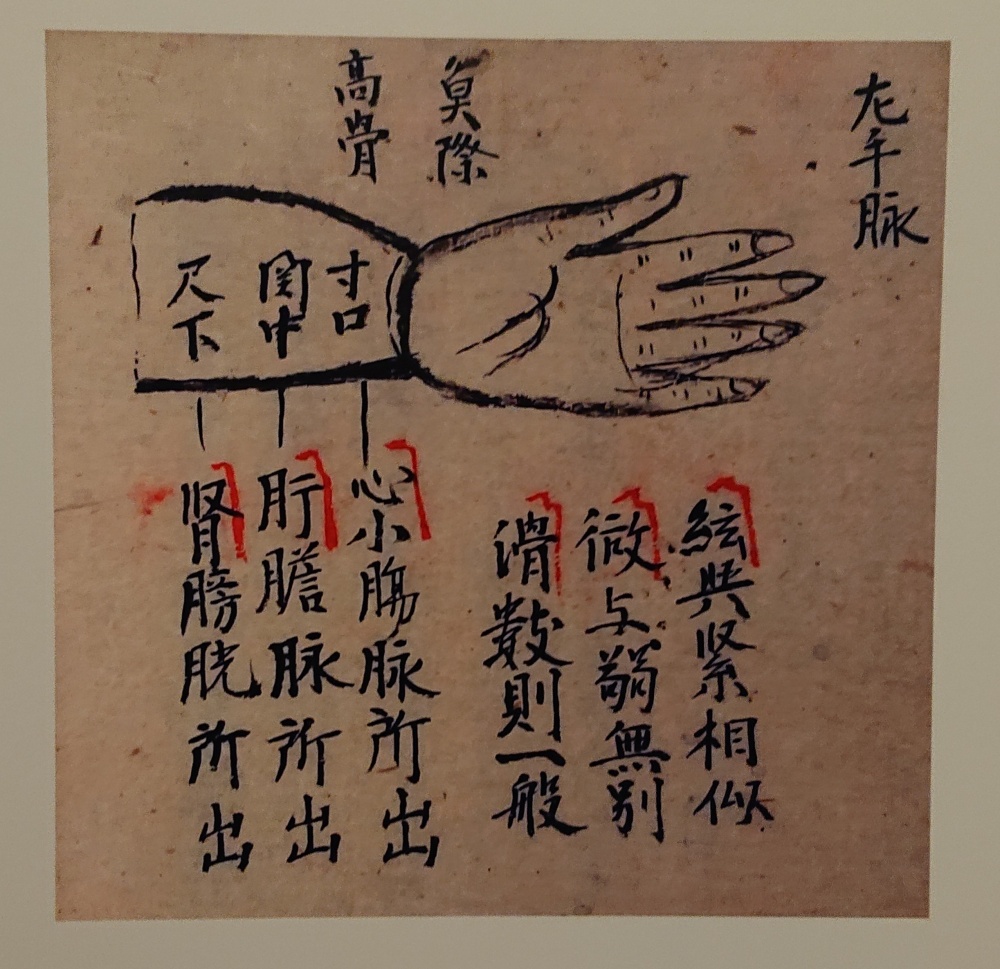 左手脉
魚際
高骨
寸口
関中
尺下
絃與紧相似
微与弱無别
滑數則一般
心小腸脉所出
肝膽脉所出
肾膀胱所出